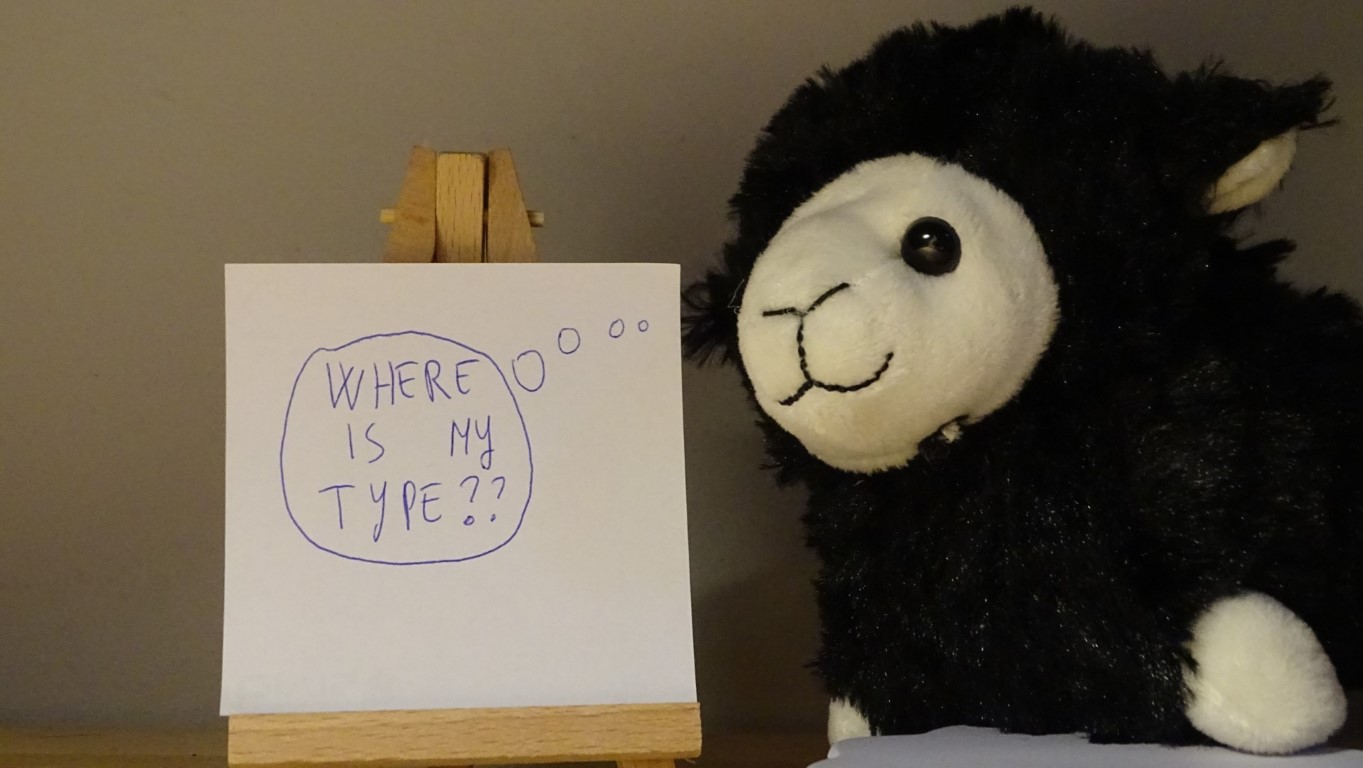 WHERE
IS MY
TYPE??